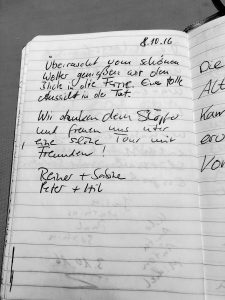 8.10.16
Überrascht vom schönen
Wetter genießen wir den
Blick in die Ferne. Eine tolle
Aussicht in der Tat.
Wir danken dem Schöpfer
und freuen uns über
eine schöne Tour mit
Freunden!
Reiner + Sabine
Peter +
Die
Alt
Kam
erw
Vor